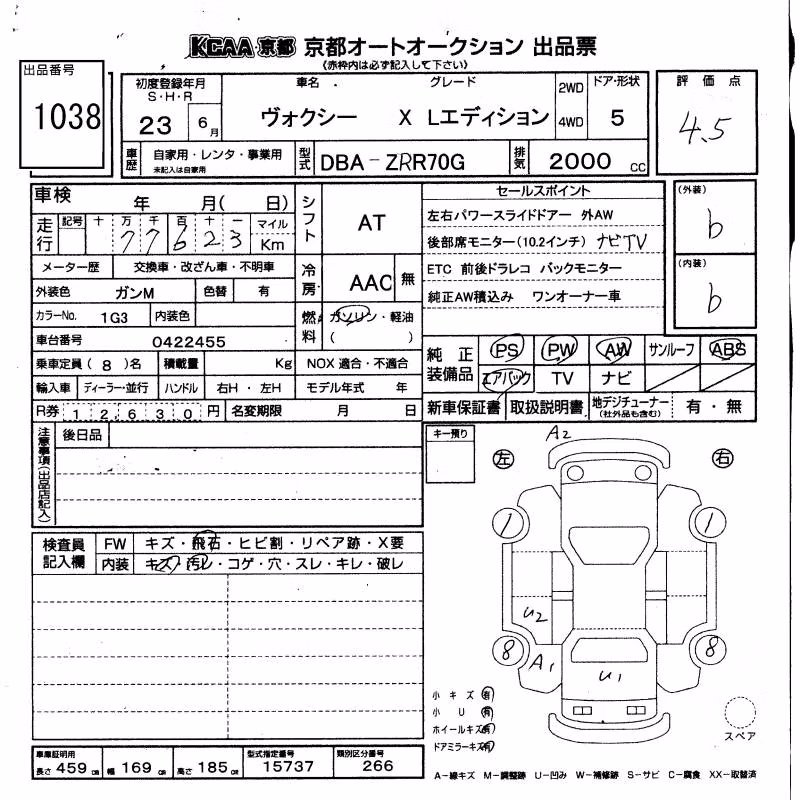 KCAA 京都 京都オートオークション 出品票
(赤枠内は必ず記入して下さい)
出品番号
1038
初度登録年月 車名 グレード 2WD ドア・形状 評価点
S・H・R
23 6月 ヴォクシー X Lエディション 4WD 5 4.5
車歴 自家用・レンタ・事業用 型式 DBA-ZRR70G 排気 2000 cc
未記入は自家用
車検 年 月( 日) シフト AT セールスポイント (外装)
走行 記号 十 万 千 百 十 一 マイル 左右パワースライドドアー 外AW b
7 7 6 2 3 Km 後部席モニター(10.2インチ) ナビTV
メーター歴 交換車・改ざん車・不明車 冷房 AAC 無 ETC 前後ドラレコ バックモニター (内装)
外装色 ガンM 色替 有 純正AW積込み ワンオーナー車 b
カラーNo. 1G3 内装色 燃料 ガソリン・軽油
( )
車台番号 0422455 純正装備品 PS PW AW サンルーフ ABS
乗車定員( 8 )名 積載量 Kg NOX 適合・不適合 エアバック TV ナビ
輸入車 ディーラー・並行 ハンドル 右H・左H モデル年式 年
R券 12,630円 名変期限 月 日 新車保証書 取扱説明書 地デジチューナー 有・無
(社外品も含む)
注意事項(出品店記入) 後日品 キー預り A2
左 右
1 1
検査員記入欄 FW キズ・飛石・ヒビ割・リペア跡・X要
内装 キズ・汚レ・コゲ・穴・スレ・キレ・破レ
U2
8 A1 U1 8
小キズ 有
小U 有
ホイールキズ 有
ドアミラーキズ 有
スペア
車庫証明用 型式指定番号 類別区分番号
長さ 459 cm 幅 169 cm 高さ 185 cm 15737 266
A-線キズ M-調整跡 U-凹み W-補修跡 S-サビ C-腐食 XX-取替済